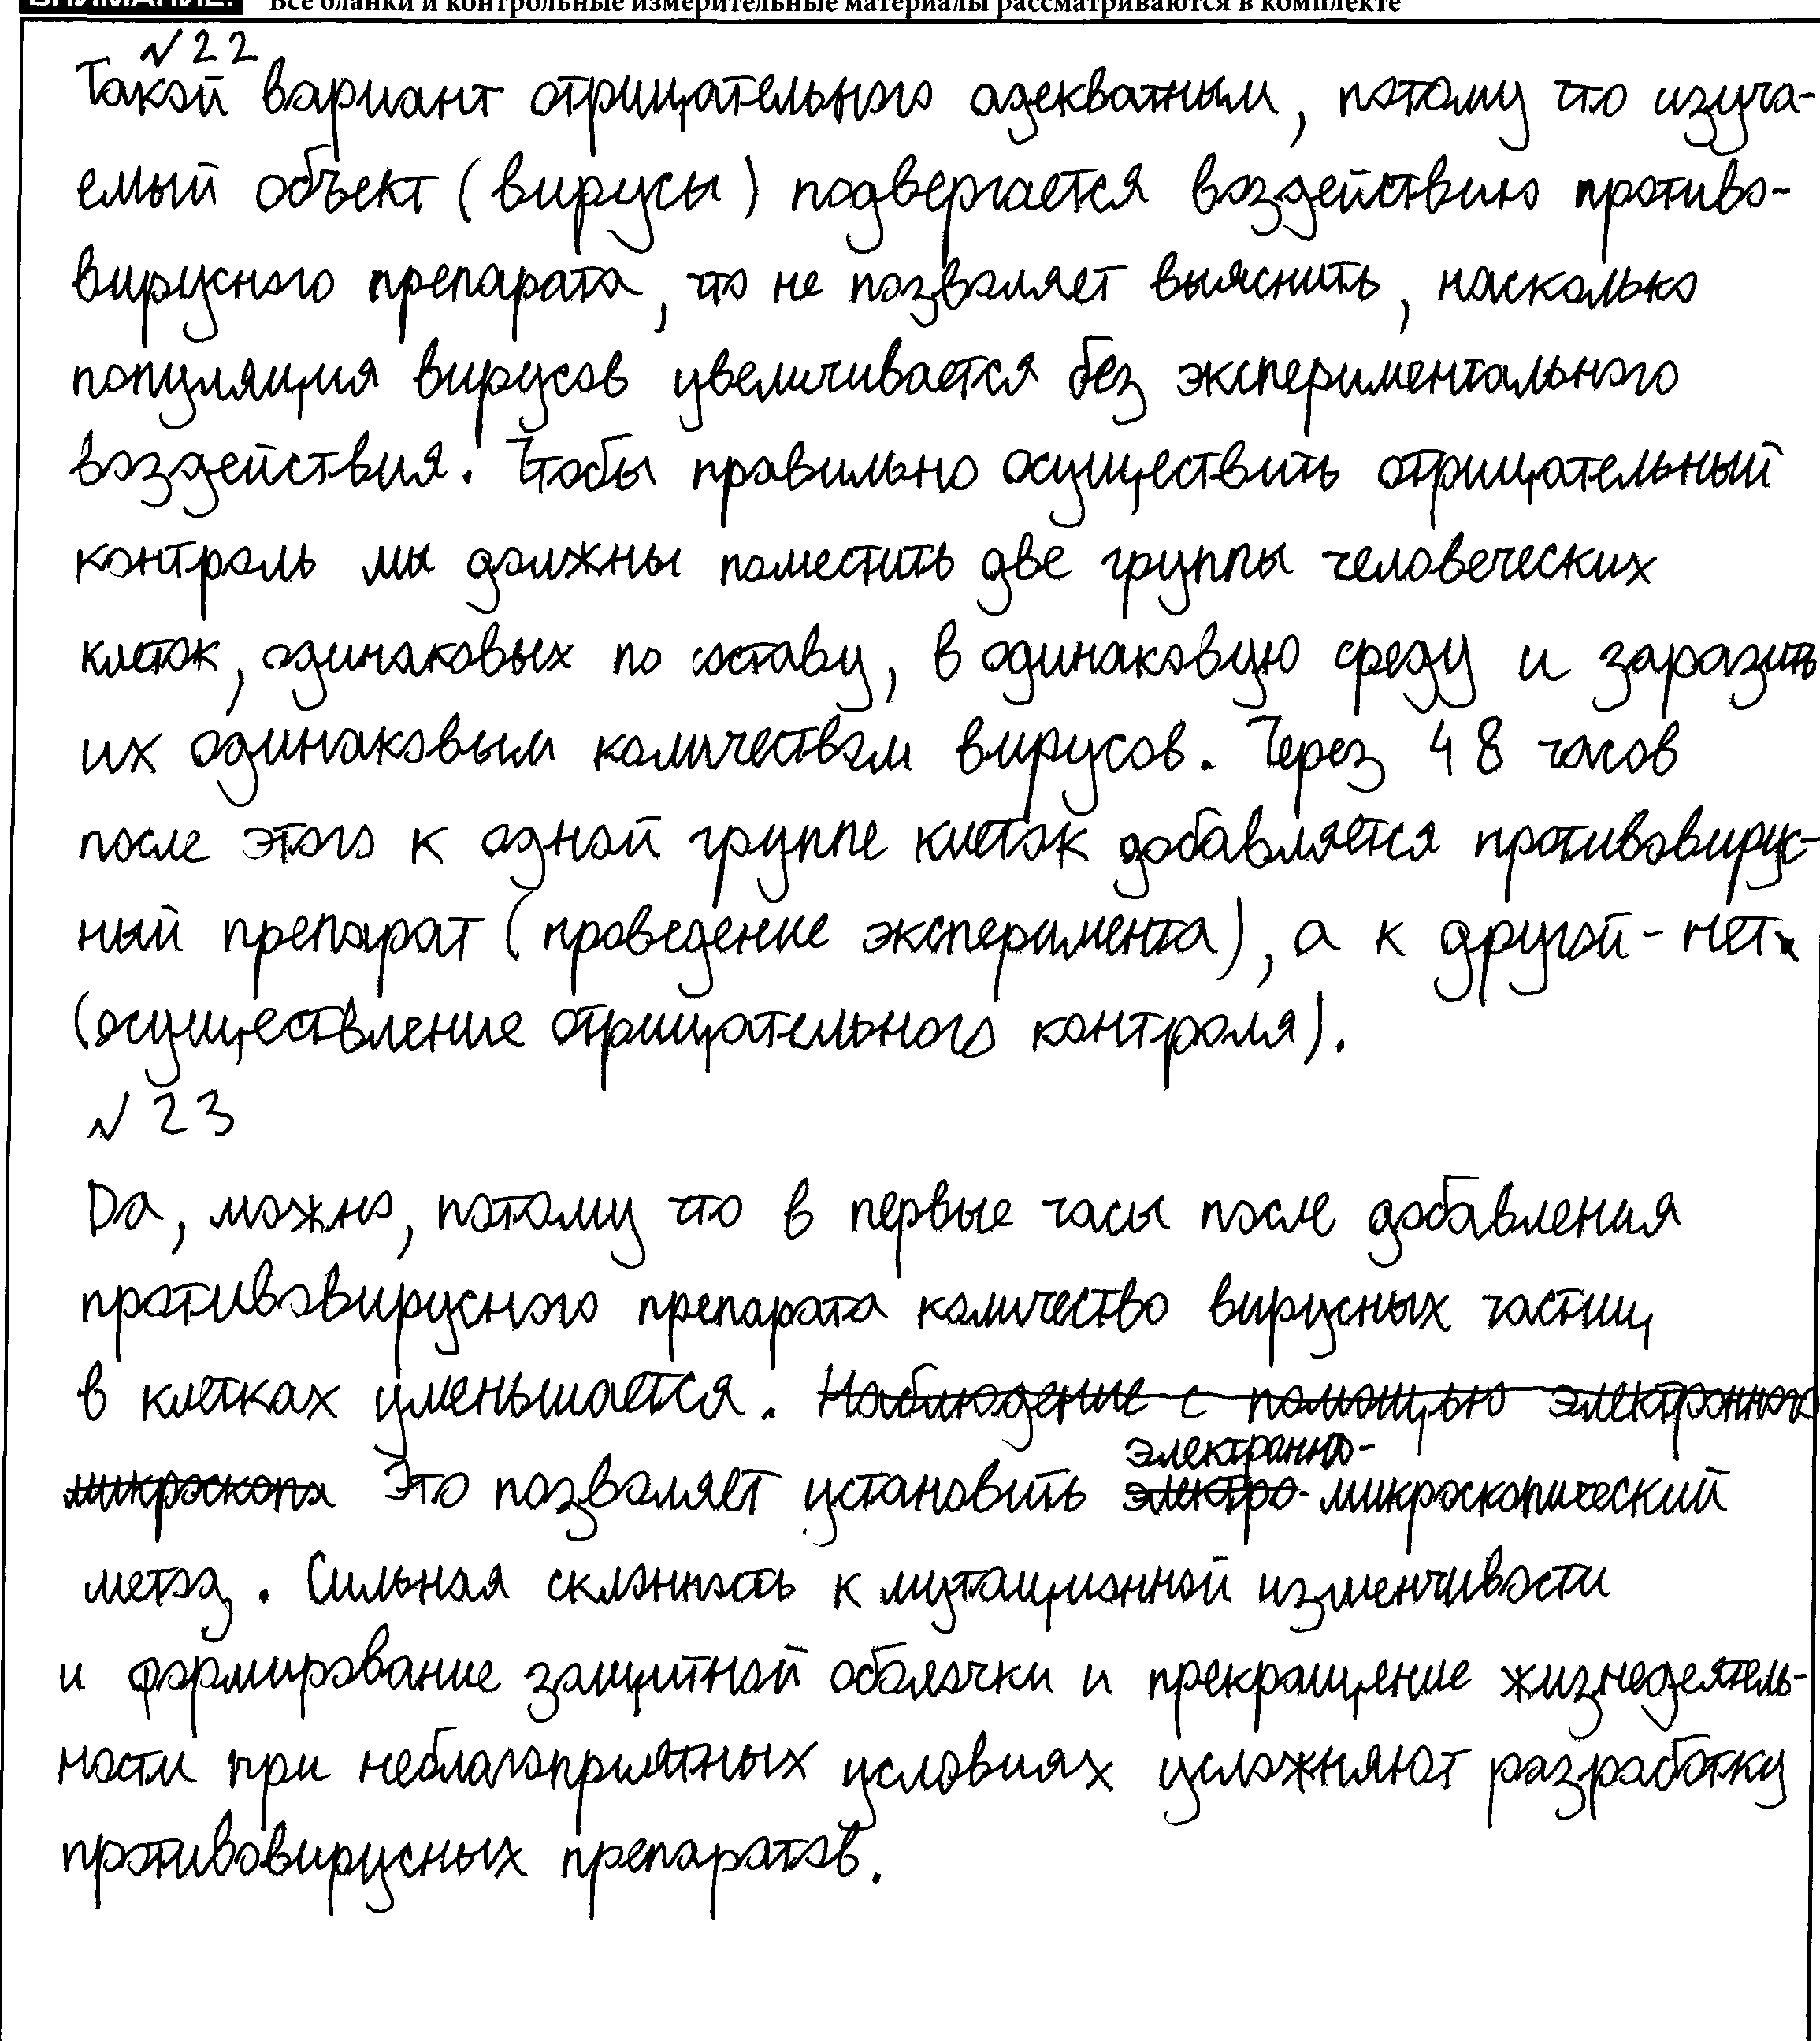 ВНИМАНИЕ! Все бланки и контрольные измерительные материалы рассматриваются в комплекте
№22
Такой вариант отрицательного адекватным, потому что изуча-
емый объект (вирусы) подвергается воздействию противо-
вирусного препарата, что не позволяет выяснить, насколько
популяция вирусов увеличивается без экспериментального
воздействия. Чтобы правильно осуществить отрицательный
контроль мы должны поместить две группы человеческих
клеток, одинаковых по составу, в одинаковую среду и заразить
их одинаковым количеством вирусов. Через 48 часов
после этого к одной группе клеток добавляется противовирус-
ный препарат (проведение эксперимента), а к другой - нет
(осуществление отрицательного контроля).
№23
Да, можно, потому что в первые часы после добавления
противовирусного препарата количество вирусных частиц
в клетках уменьшается. Наблюдение с помощью электронного
электронно-
микроскопа Это позволяет установить электро-микроскопический
метод. Сильная склонность к мутационной изменчивости
и формирование защитной оболочки и прекращение жизнедеятель-
ности при неблагоприятных условиях усложняют разработку
противовирусных препаратов.